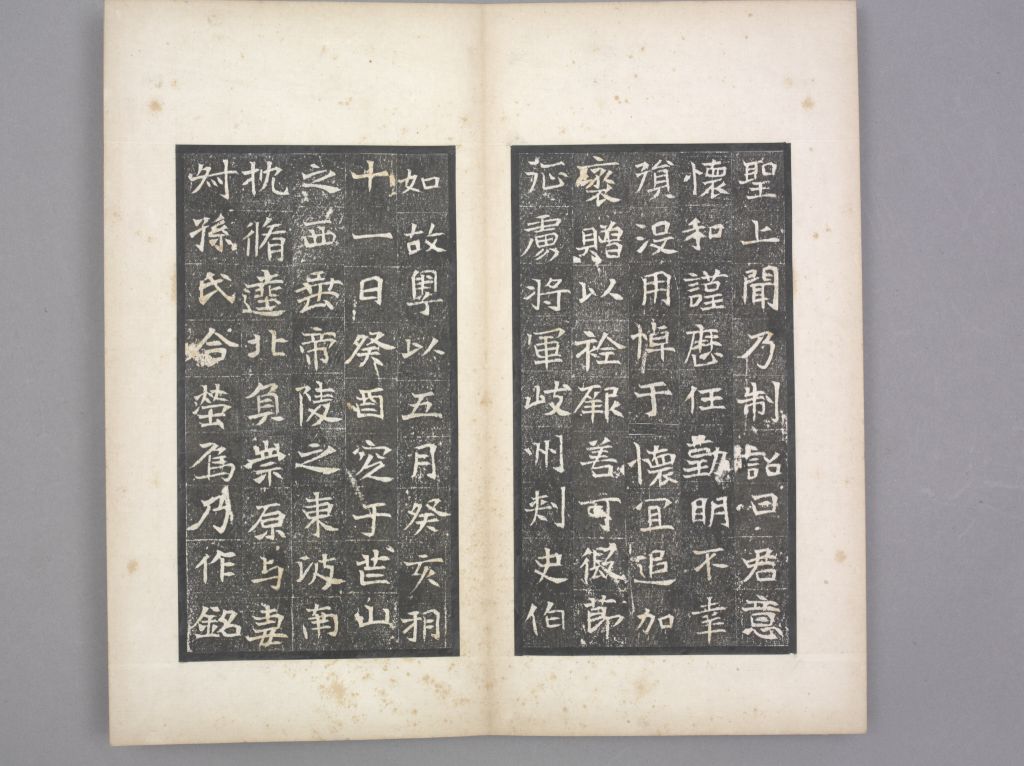 聖上聞乃制詔曰君意
懷和謹歷任勤明不幸
殞沒用悼于懷宜追加
褒贈以厥善可假節
征虜將軍岐州刺史伯
如故粤以五月癸亥朔
十一日癸酉窆于芒山
之西垂帝陵之東波南
枕脩逵北負崇原与妻
叔孫氏合塋焉乃作銘